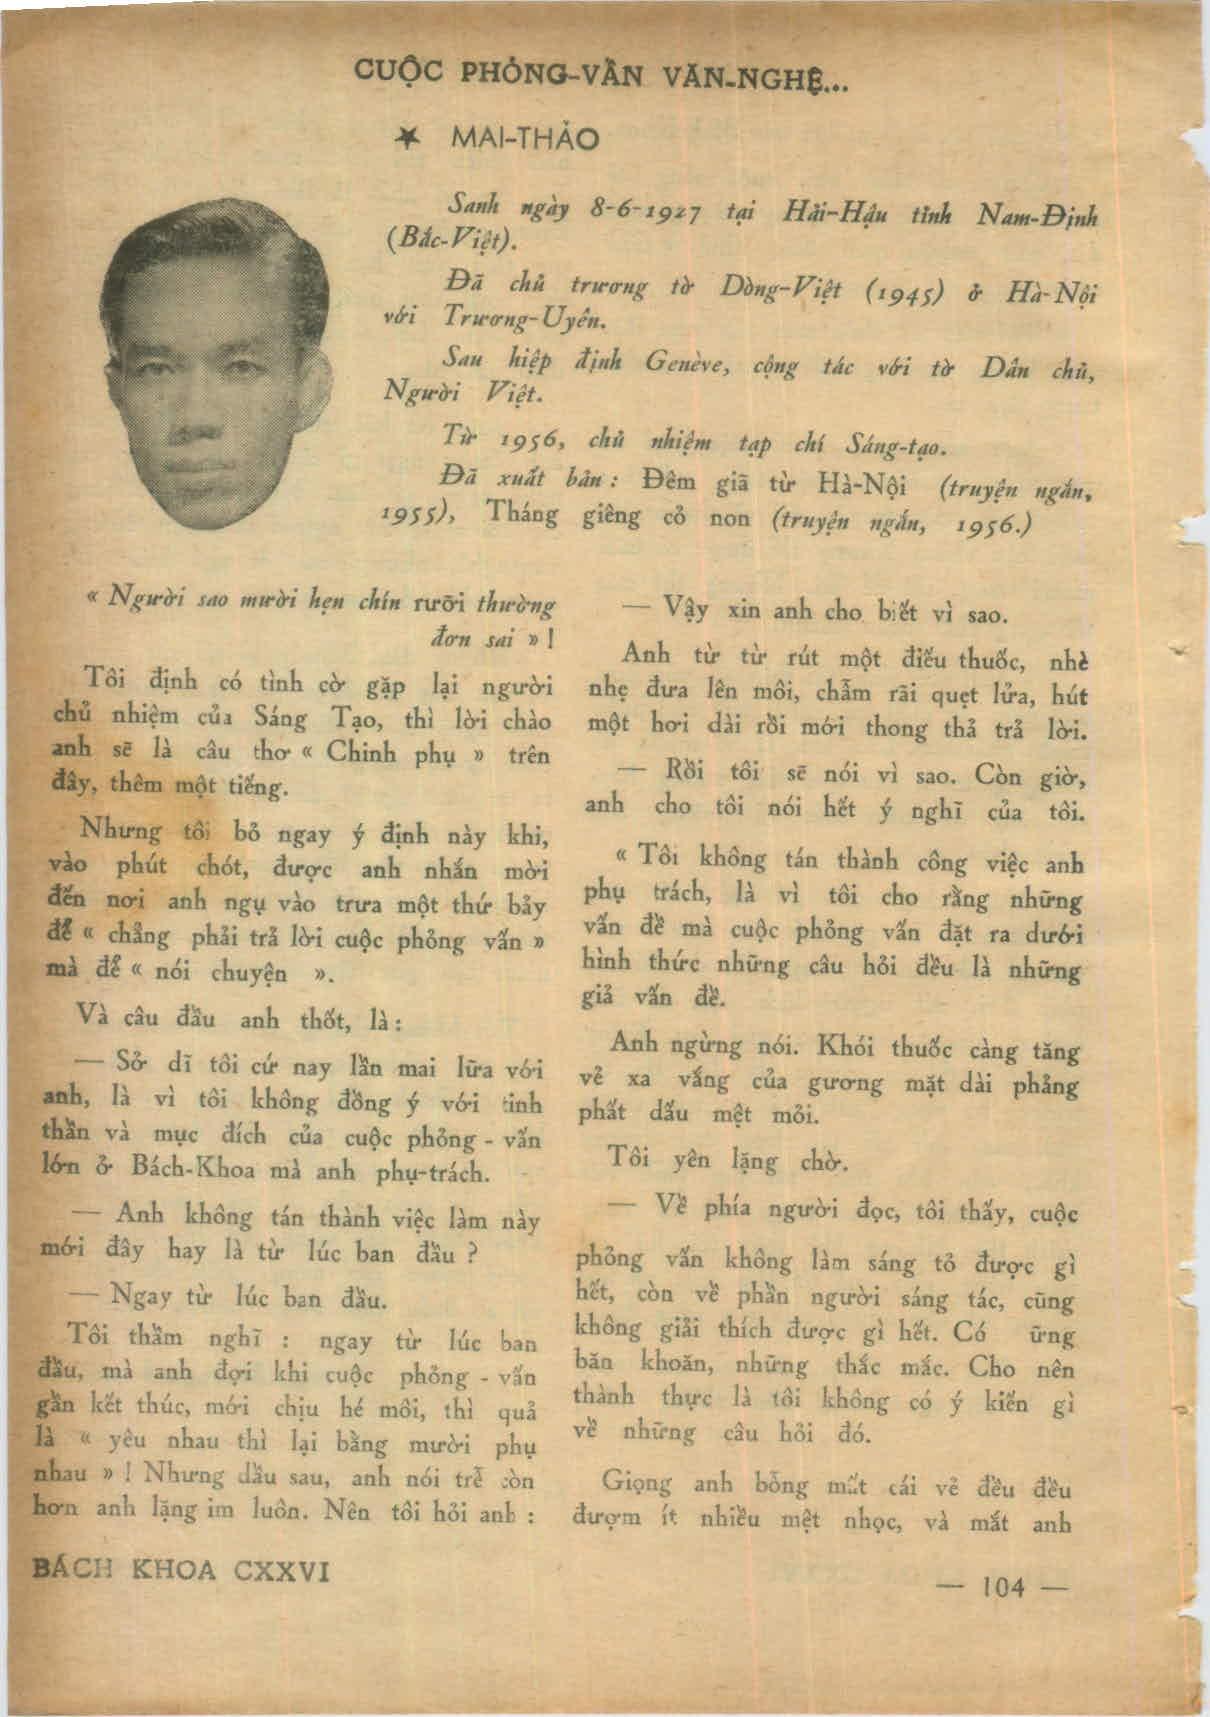 CUỘC PHỎNG-VẤN VĂN-NGHỆ...
★ MAI-THẢO
Sanh ngày 8-6-1927 tại Hải-Hậu tỉnh Nam-Định
(Bắc-Việt).
Đã chủ trương tờ Dòng-Việt (1945) ở Hà-Nội
với Trương-Uyên.
Sau hiệp định Genève, cộng tác với tờ Dân chủ,
Người Việt.
Từ 1956, chủ nhiệm tạp chí Sáng-tạo.
Đã xuất bản : Đêm giã từ Hà-Nội (truyện ngắn,
1955), Tháng giêng cỏ non (truyện ngắn, 1956.)
« Người sao mười hẹn chín rưỡi thường
đơn sai » !
Tôi định có tình cờ gặp lại người
chủ nhiệm của Sáng Tạo, thì lời chào
anh sẽ là câu thơ « Chinh phụ » trên
đây, thêm một tiếng.
Nhưng tôi bỏ ngay ý định này khi,
vào phút chót, được anh nhắn mời
đến nơi anh ngụ vào trưa một thứ bảy
để « chẳng phải trả lời cuộc phỏng vấn »
mà để « nói chuyện ».
Và câu đầu anh thốt, là :
— Sở dĩ tôi cứ nay lần mai lữa với
anh, là vì tôi không đồng ý với tinh
thần và mục đích của cuộc phỏng - vấn
lớn ở Bách-Khoa mà anh phụ-trách.
— Anh không tán thành việc làm này
mới đây hay là từ lúc ban đầu ?
— Ngay từ lúc ban đầu.
Tôi thầm nghĩ : ngay từ lúc ban
đầu, mà anh đợi khi cuộc phỏng - vấn
gần kết thúc, mới chịu hé môi, thì quả
là « yêu nhau thì lại bằng mười phụ
nhau » ! Nhưng dầu sau, anh nói trễ còn
hơn anh lặng im luôn. Nên tôi hỏi anh :
— Vậy xin anh cho biết vì sao.
Anh từ từ rút một điếu thuốc, nhè
nhẹ đưa lên môi, chẫm rãi quẹt lửa, hút
một hơi dài rồi mới thong thả trả lời.
— Rồi tôi sẽ nói vì sao. Còn giờ,
anh cho tôi nói hết ý nghĩ của tôi.
« Tôi không tán thành công việc anh
phụ trách, là vì tôi cho rằng những
vấn đề mà cuộc phỏng vấn đặt ra dưới
hình thức những câu hỏi đều là những
giả vấn đề.
Anh ngừng nói. Khói thuốc càng tăng
vẻ xa vắng của gương mặt dài phảng
phất dấu mệt mỏi.
Tôi yên lặng chờ.
— Về phía người đọc, tôi thấy, cuộc
phỏng vấn không làm sáng tỏ được gì
hết, còn về phần người sáng tác, cũng
không giải thích được gì hết. Có ững
băn khoăn, những thắc mắc. Cho nên
thành thực là tôi không có ý kiến gì
về những câu hỏi đó.
Giọng anh bỗng mất cái vẻ đều đều
đượm ít nhiều mệt nhọc, và mắt anh
BÁCH KHOA CXXVI
— 104 —